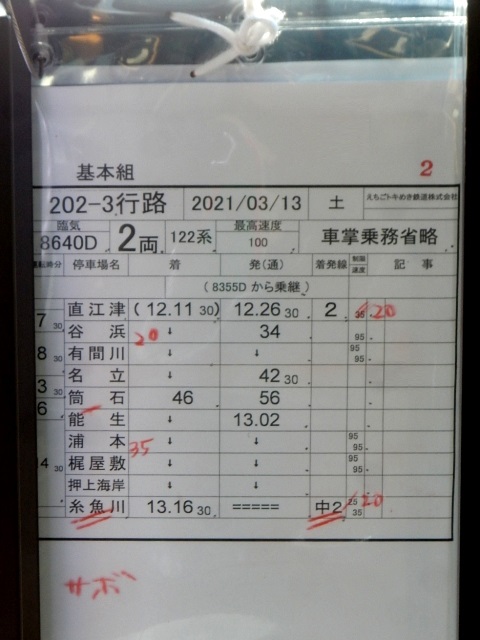 基本組 2
202-3行路 2021/03/13 土 えちごトキめき鉄道株式会社
臨気 8640D 2両 122系 最高速度 100 車掌乗務省略
運転時分 停車場名 着 発(通) 着発線 制限速度 記事
(8355Dから乗継)
7 30 直江津 (12.11 30) 12.26 30 2 35 20
谷浜 20 ↓ 34 95
8 30 有間川 ↓ ↓ 95 95
名立 ↓ 42 30
3 30 筒石 46 56
6 能生 ↓ 13.02
浦本 35 ↓ ↓ 95 95
4 30 梶屋敷 ↓ ↓ 95 95
押上海岸 ↓ ↓
糸魚川 13.16 30 ===== 中2 25 35 20
サボ